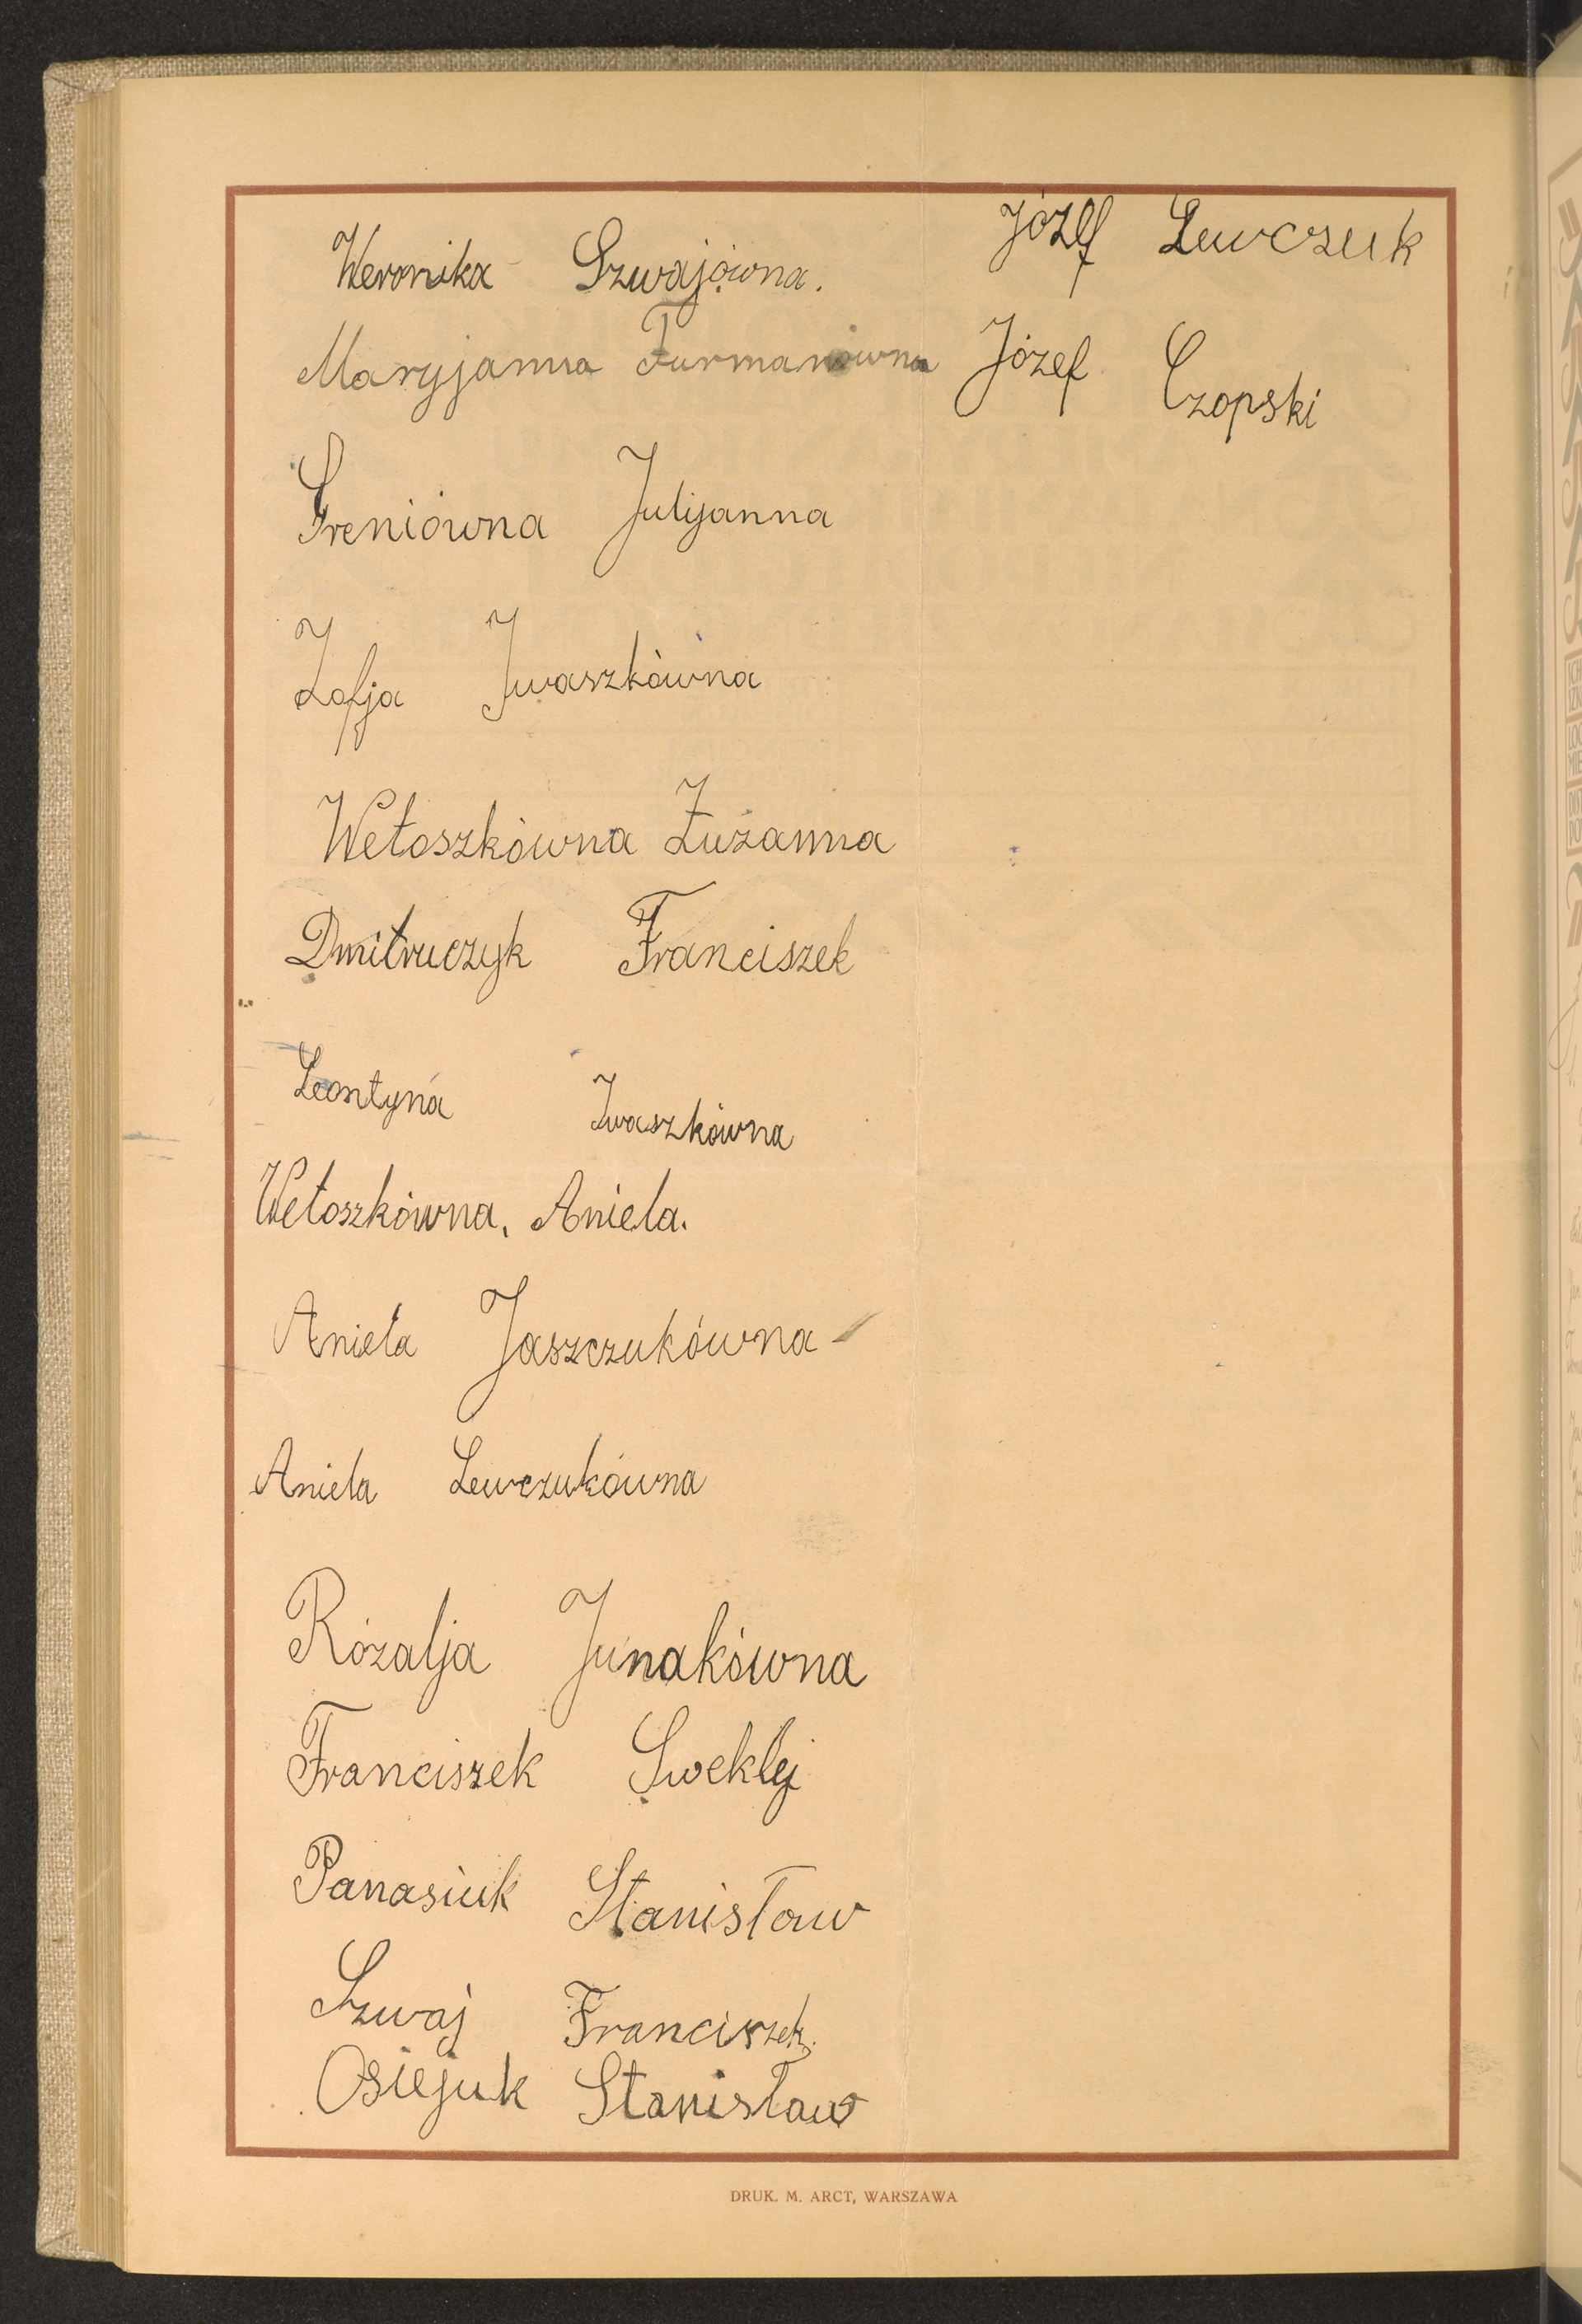 Weronika Szwajówna.
Maryjanna Furmanówna
Greniówna Julijanna
Zofja Iwaszkówna
Wetoszkówna Zuzanna
Dmitruczyk Franciszek
Leontyna Iwaszkówna
Wetoszkówna, Aniela.
Aniela Jaszczukówna
Aniela Lewczukówna
Rózalja Junakówna
Franciszek Sweklej
Panasiuk Stanisław
Szwaj Franciszek.
Osiejuk Stanisław
Józef Lewczuk
Józef Czopski
DRUK. M. ARCT, WARSZAWA